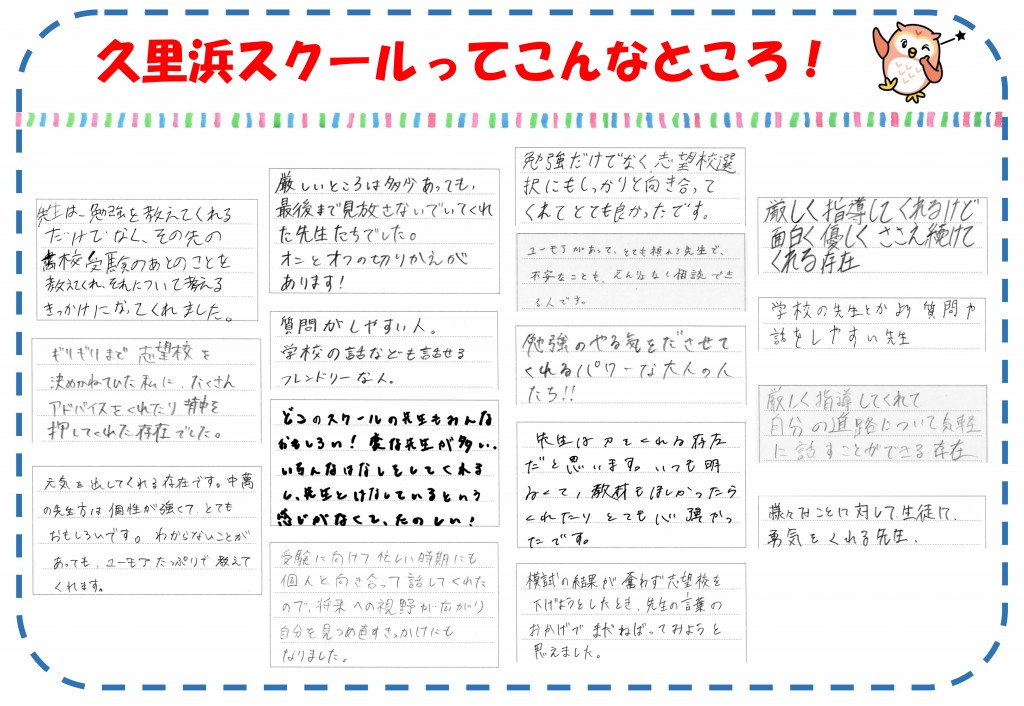 久里浜スクールってこんなところ！
先生は、勉強を教えてくれる
だけでなく、その先の
高校受験のあとのことを
教えてくれ、それについて考える
きっかけになってくれました。
ギリギリまで志望校を
決めかねていた私に、たくさん
アドバイスをくれたり背中を
押してくれた存在でした。
元気を出してくれる存在です。中萬
の先生方は個性が強くて、とても
おもしろいです。わからないことが
あっても、ユーモアたっぷりで教えて
くれます。
厳しいところは多少あっても、
最後まで見放さないでいてくれ
た先生たちでした。
オンとオフの切りかえが
あります！
質問がしやすい人。
学校の話なども話せる
フレンドリーな人。
どこのスクールの先生もみんな
おもしろい！変な先生が多い。
いろんなはなしをしてくれる
し、先生とはなしているという
感じがなくて、たのしい！
受験に向けて忙しい時期にも
個人と向き合って話してくれた
ので、将来への視野が広がり
自分を見つめ直すきっかけにも
なりました。
勉強だけでなく、志望校選
択にもしっかりと向き合って
くれてとても良かったです。
ユーモアがあって、とても頼れる先生で、
不安なことも、えんりょなく相談でき
る人です。
勉強のやる気をださせて
くれるパワーな大人の人
たち!!
先生は支えてくれる存在
だと思います。いつも明
るくて、教材もほしかったら
くれたりとても心強かっ
たです。
模試の結果が奮わず志望校を
下げようとしたとき、先生の言葉の
おかげでまだねばってみようと
思えました。
厳しく指導してくれるけど
面白く優しくささえ続けて
くれる存在
学校の先生とかより質問や
話をしやすい先生
厳しく指導してくれて
自分の進路について気軽
に話すことができる存在
様々なことに対して生徒に、
勇気をくれる先生.